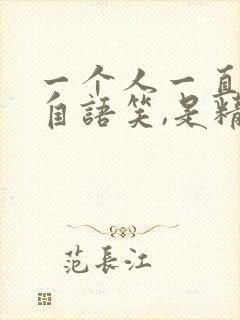 一个人一直
自語笑,是精
范長江